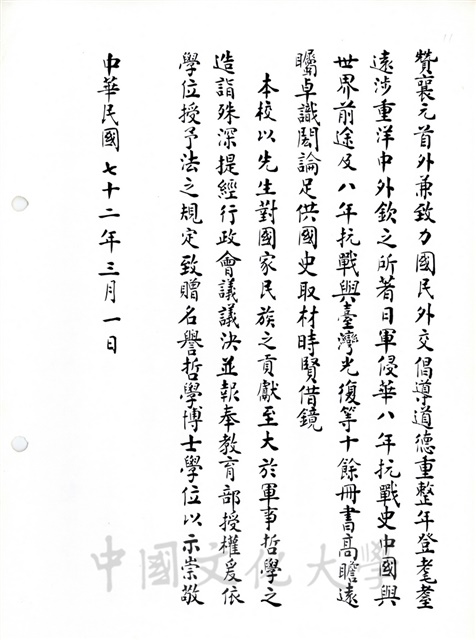 贊襄元首外兼致力國民外交倡導道德重整年登耄耋
遠涉重洋中外欽之所著日軍侵華八年抗戰史中國與
世界前途及八年抗戰與臺灣光復等十餘冊書高瞻遠
矚卓識閎論足供國史取材時賢借鏡
本校以先生對國家民族之貢獻至大於軍事哲學之
造詣殊深提經行政會議議決並報奉教育部授權爰依
學位授予法之規定致贈名譽哲學博士學位以示崇敬
中華民國七十二年三月一日
中國文化大學